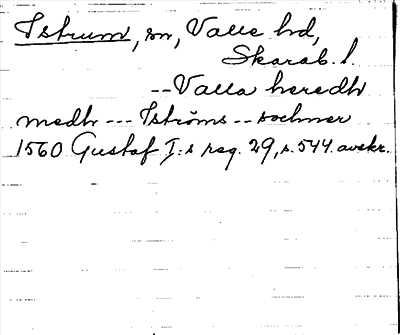 Istrum, sn, Valle hd,
Skarab. l.
-- Valla heredh
medh --- Iströms -- sochner
1560 Gustaf I:s reg. 29, s. 544. avskr.